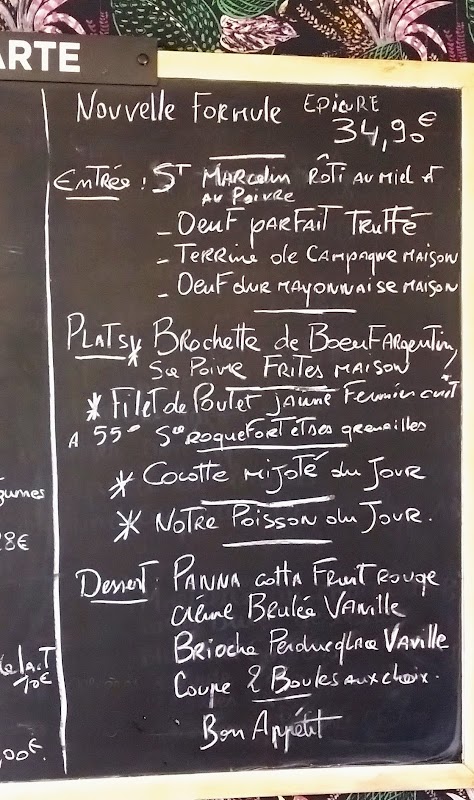 ARTE
Nouvelle Formule EPICURE
34,90€
Entrée : St Marcelin Rôti au miel et
au Poivre
- Oeuf parfait Truffé
- Terrine de Campagne maison
- Oeuf dur mayonnaise maison
Plats * Brochette de Boeuf Argentin,
Sce Poivre Frites maison
* Filet de Poulet jaune Fermier cuit
A 55° Sce roquefort et ses grenailles
* Cocotte mijoté du Jour
* Notre Poisson du Jour.
Dessert : Panna cotta Fruit rouge
crème Brulée Vanille
Brioche Perdue glace Vanille
Coupe 2 Boules aux choix.
Bon Appétit
gumes
8€
lait
10€
,00€.